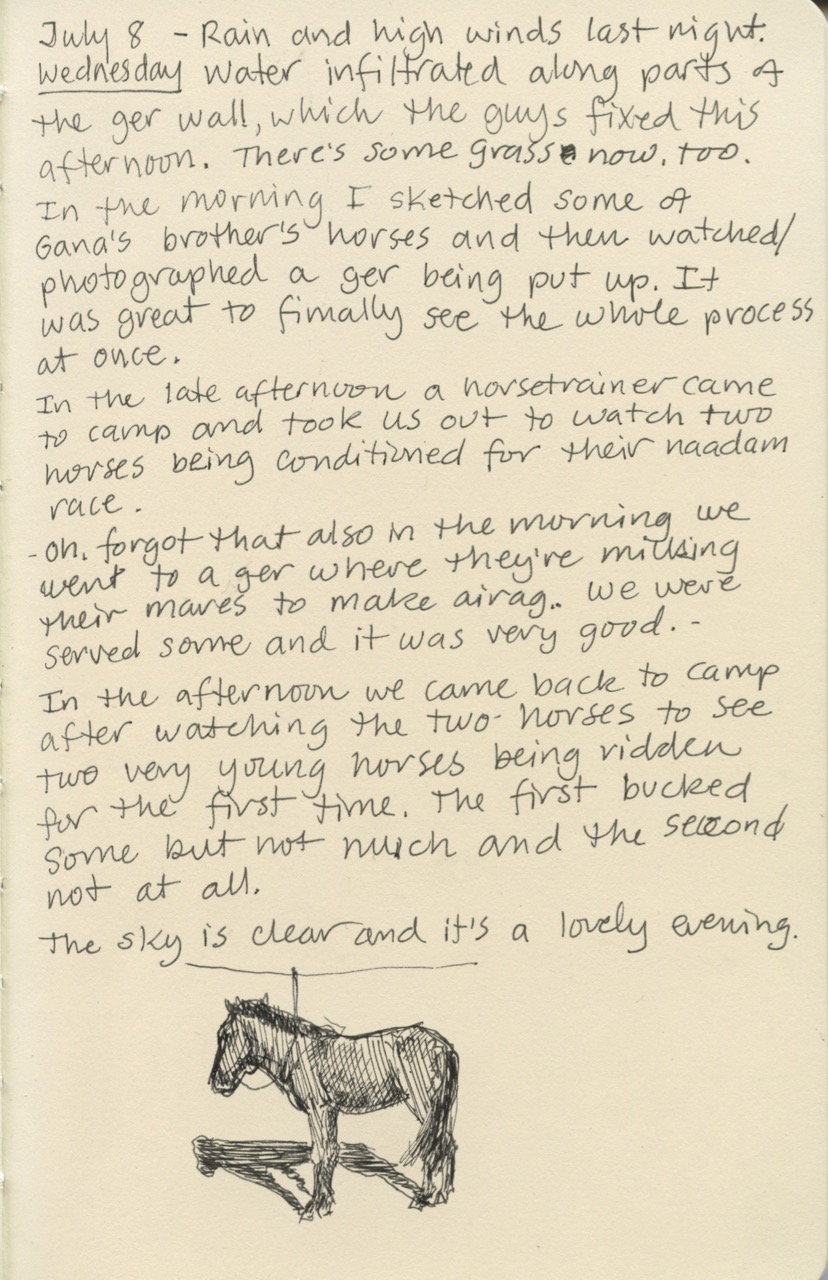 July 8 - Rain and high winds last night.
Wednesday Water infiltrated along parts of
the ger wall, which the guys fixed this
afternoon. There's some grass now, too.
In the morning I sketched some of
Gana's brother's horses and then watched/
photographed a ger being put up. It
was great to finally see the whole process
at once.
In the late afternoon a horsetrainer came
to camp and took us out to watch two
horses being conditioned for their naadam
race.
- Oh, forgot that also in the morning we
went to a ger where they're milking
their mares to make airag.. We were
served some and it was very good. -
In the afternoon we came back to camp
after watching the two horses to see
two very young horses being ridden
for the first time. The first bucked
some but not much and the second
not at all.
The sky is clear and it's a lovely evening.